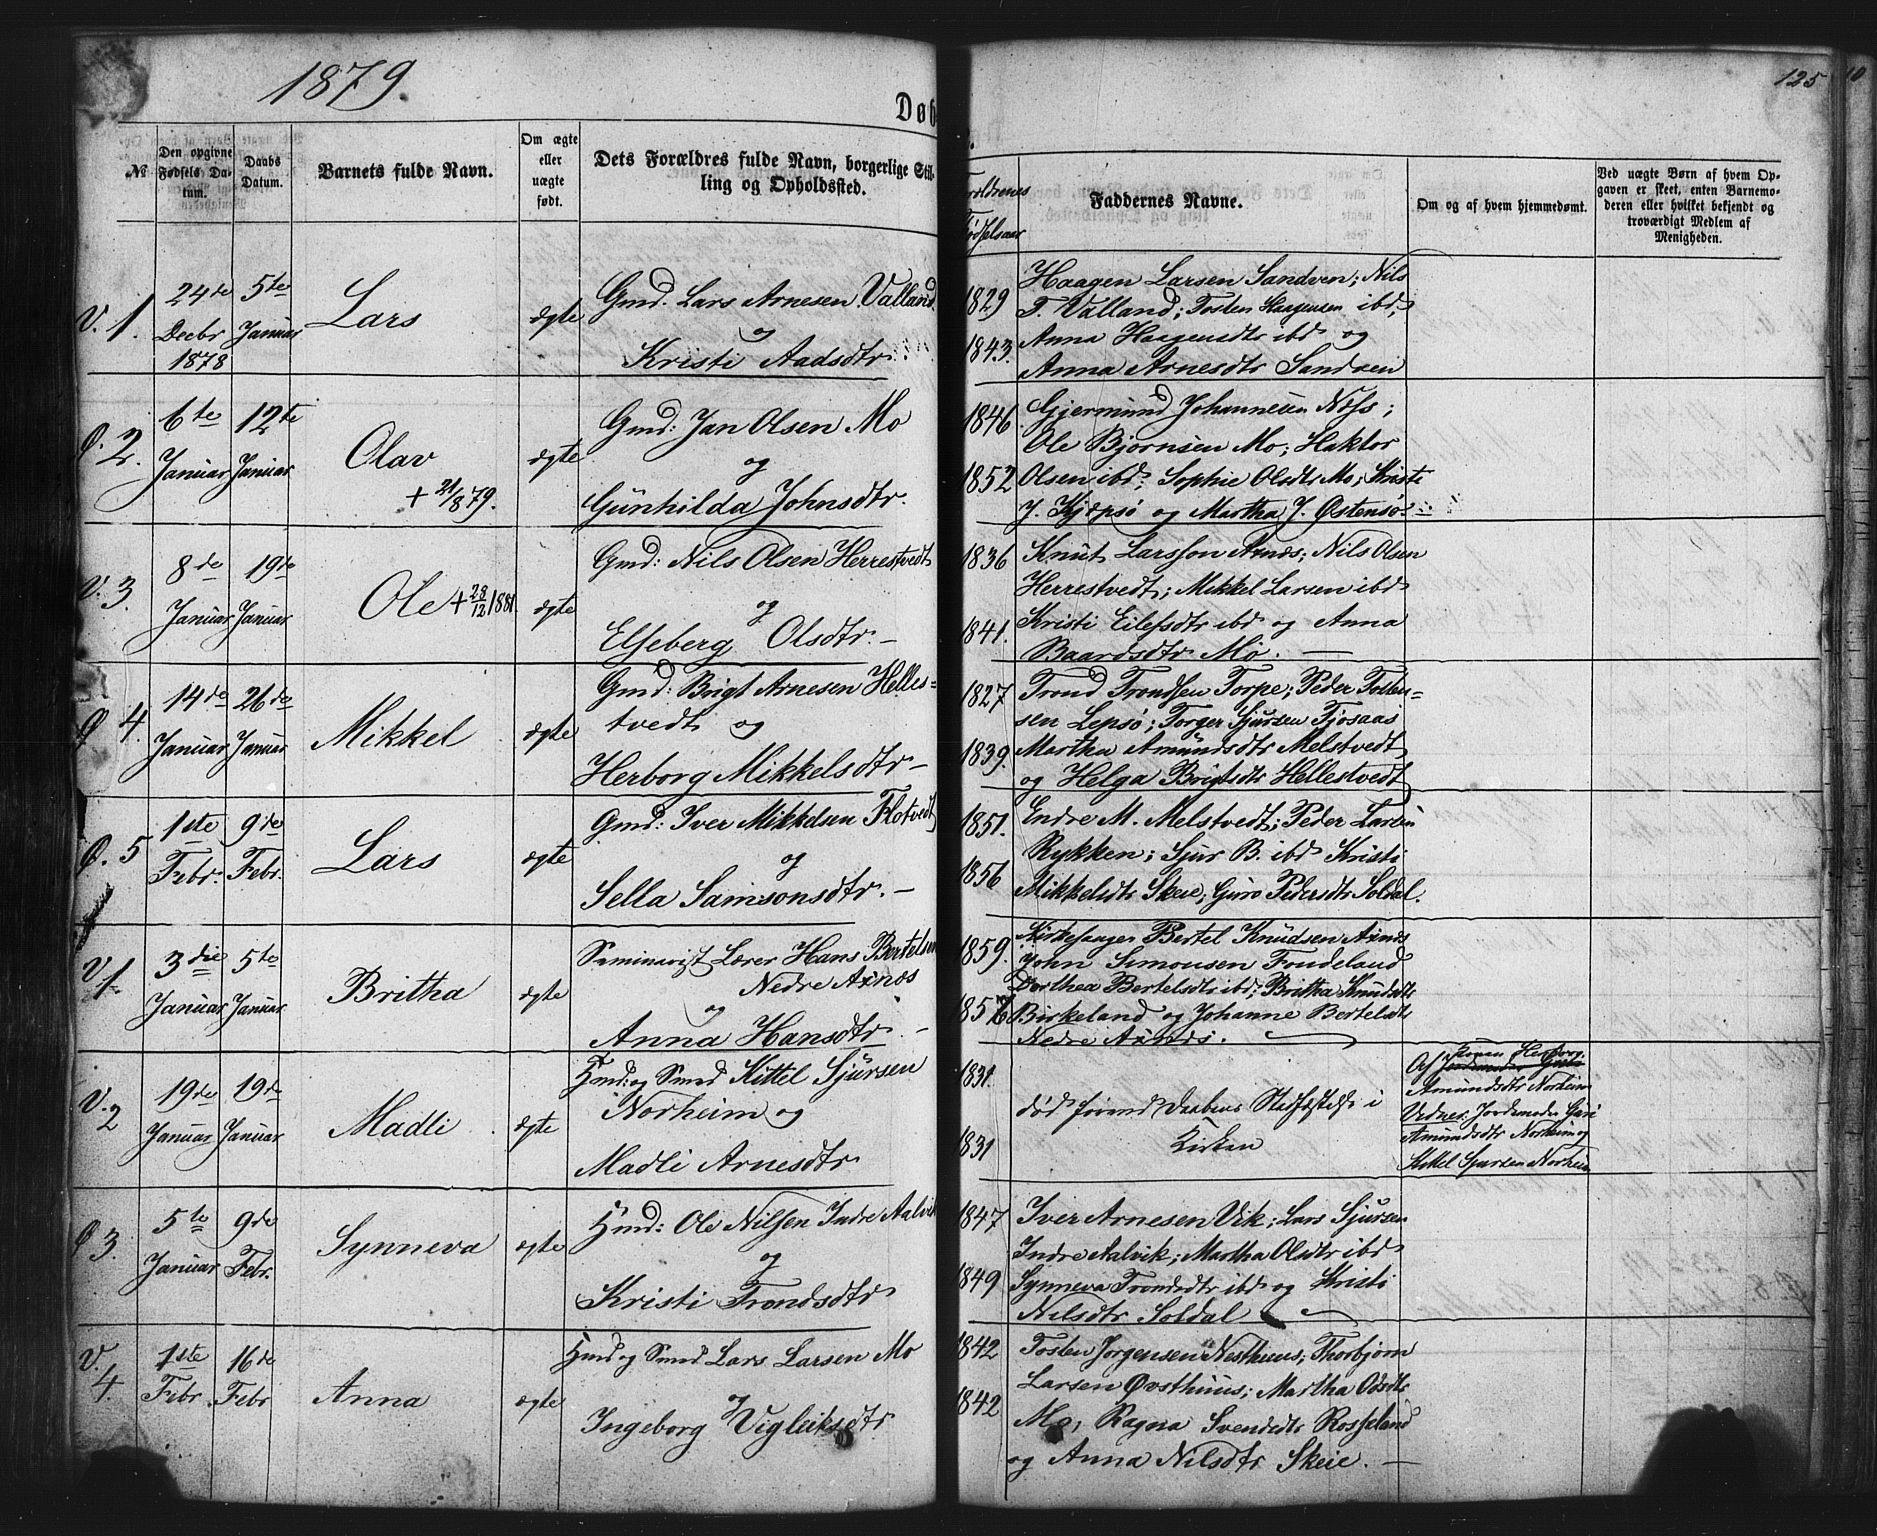 1879.
125
Døb
№
Den opgivne Fødsels Da-tum.
Daabs Datum.
Barnets fulde Navn.
Om ægte eller uægte født.
Dets Forældres fulde Navn, borgerlige Stil-
ling og Opholdssted.
Fødselsaar
Faddernes Navne.
Om og af hvem hjemmedøbt.
Ved uægte Børn af hvem Op-
gaven er skeet, enten Barnemo-
deren eller hvilket bekjendt og
troværdigt Medlem af
Menigheden.
V. 1.
24de Decbr 1878
5te Januar
Lars
ægte
Gmd. Lars Arnesen Valland
og
Kristi Aadsdtr.
1829
1843.
Haagen Larsen Sandven; Nils
T. Valland; Tosten Haagensen ibd;
Anna Haagensdtr ibd og
Anna Arnesdtr Sandven
Ø. 2.
6te Januar
12te Januar
Olav
+ 21/8 79.
ægte
Gmd: Jan Olsen Mo
og
Gunhilda Johnsdtr.
1846.
1852
Gjermund Johannesen Næss;
Ole Bjørnsen Mo; Haktor
Olsen ibd; Sophie Olsdtr Mo; Kristi
J. Kjepsø og Martha J. Østensø.
V. 3.
8de Januar
19de Januar
Ole + 28/12 1881.
ægte
Gmd: Nils Olsen Herrestvedt
og
Elseberg Olsdtr. —
1836
1841.
Knut Larsson Axnæs; Nils Olsen
Herrestvedt; Mikkel Larsen ibd
Kristi Eilefsdtr ibd og Anna
Baardsdtr Mo. —
Ø 4.
14de Januar
26de Januar
Mikkel
ægte
Gmd: Brigt Arnesen Helles=
tvedt og
Herborg Mikkelsdtr —
1827
1839.
Trond Trondsen Torpe; Peder Tosten=
sen Lepsø; Torger Sjursen Fjosaas
Martha Amundsdtr Melstvedt
og Helga Brigtsdtr Hellestvedt
Ø. 5
1ste Febr.
9de Febr.
Lars
ægte
Gmd: Iver Mikkelsen Flotvedt
og
Sella Samsonsdtr. —
1851.
1856
Endre M. Melstvedt; Peder Larsen
Rykken; Sjur B. ibd Kristi
Mikkelsdtr Skeie; Guro Pedersdtr Soldal.
V 1
3die Januar
5te Januar
Britha
ægte
Seminarist Lærer Hans Bertelsen
Nedre Axnæs
og
Anna Hansdtr. —
1859.
Kirkesanger Bertel Knudsen Axnæs
John Simonsen Fondeland
Dorthea Bertelsdtr ibd; Britha Knudsdtr
Birkeland og Johanne Bertelsdtr
Nedre Axnæs.
V. 2
19de Januar
19de Januar
Madli
ægte
Hmd: og Smed Kittel Sjursen
Norheim og
Madli Arnesdtr
1831
1831
død førend Daabens Stadfæstelse i
Kirken
Af Konen Herborg
Amundsdtr Norheim
Vidner Jordemoder Guri
Amundsdtr Norheim og
Kittel Sjursen Norheim
Ø 3.
5te Januar
9de Febr.
Synneva
ægte
Hmd: Ole Nilsen Indre Aalvik
og
Kristi Trondsdtr
1847
1849
Iver Arnesen Vik; Lars Sjursen
Indre Aalvik; Martha Olsdtr ibd
Synneva Trondsdtr ibd og Kristi
Nilsdtr Soldal
V. 4.
1ste Febr.
16de Febr
Anna
ægte
Hmd og Smed Lars Larsen Mo
og
Ingeborg Vigleiksdtr
1842
1842
Tosten Jørgensen Nesthuus; Thorbjørn
Larsen Øvsthuus; Martha Odsdtr
Mo; Ragna Svendsdtr Rosseland
og Anna Nilsdtr Skeie. —